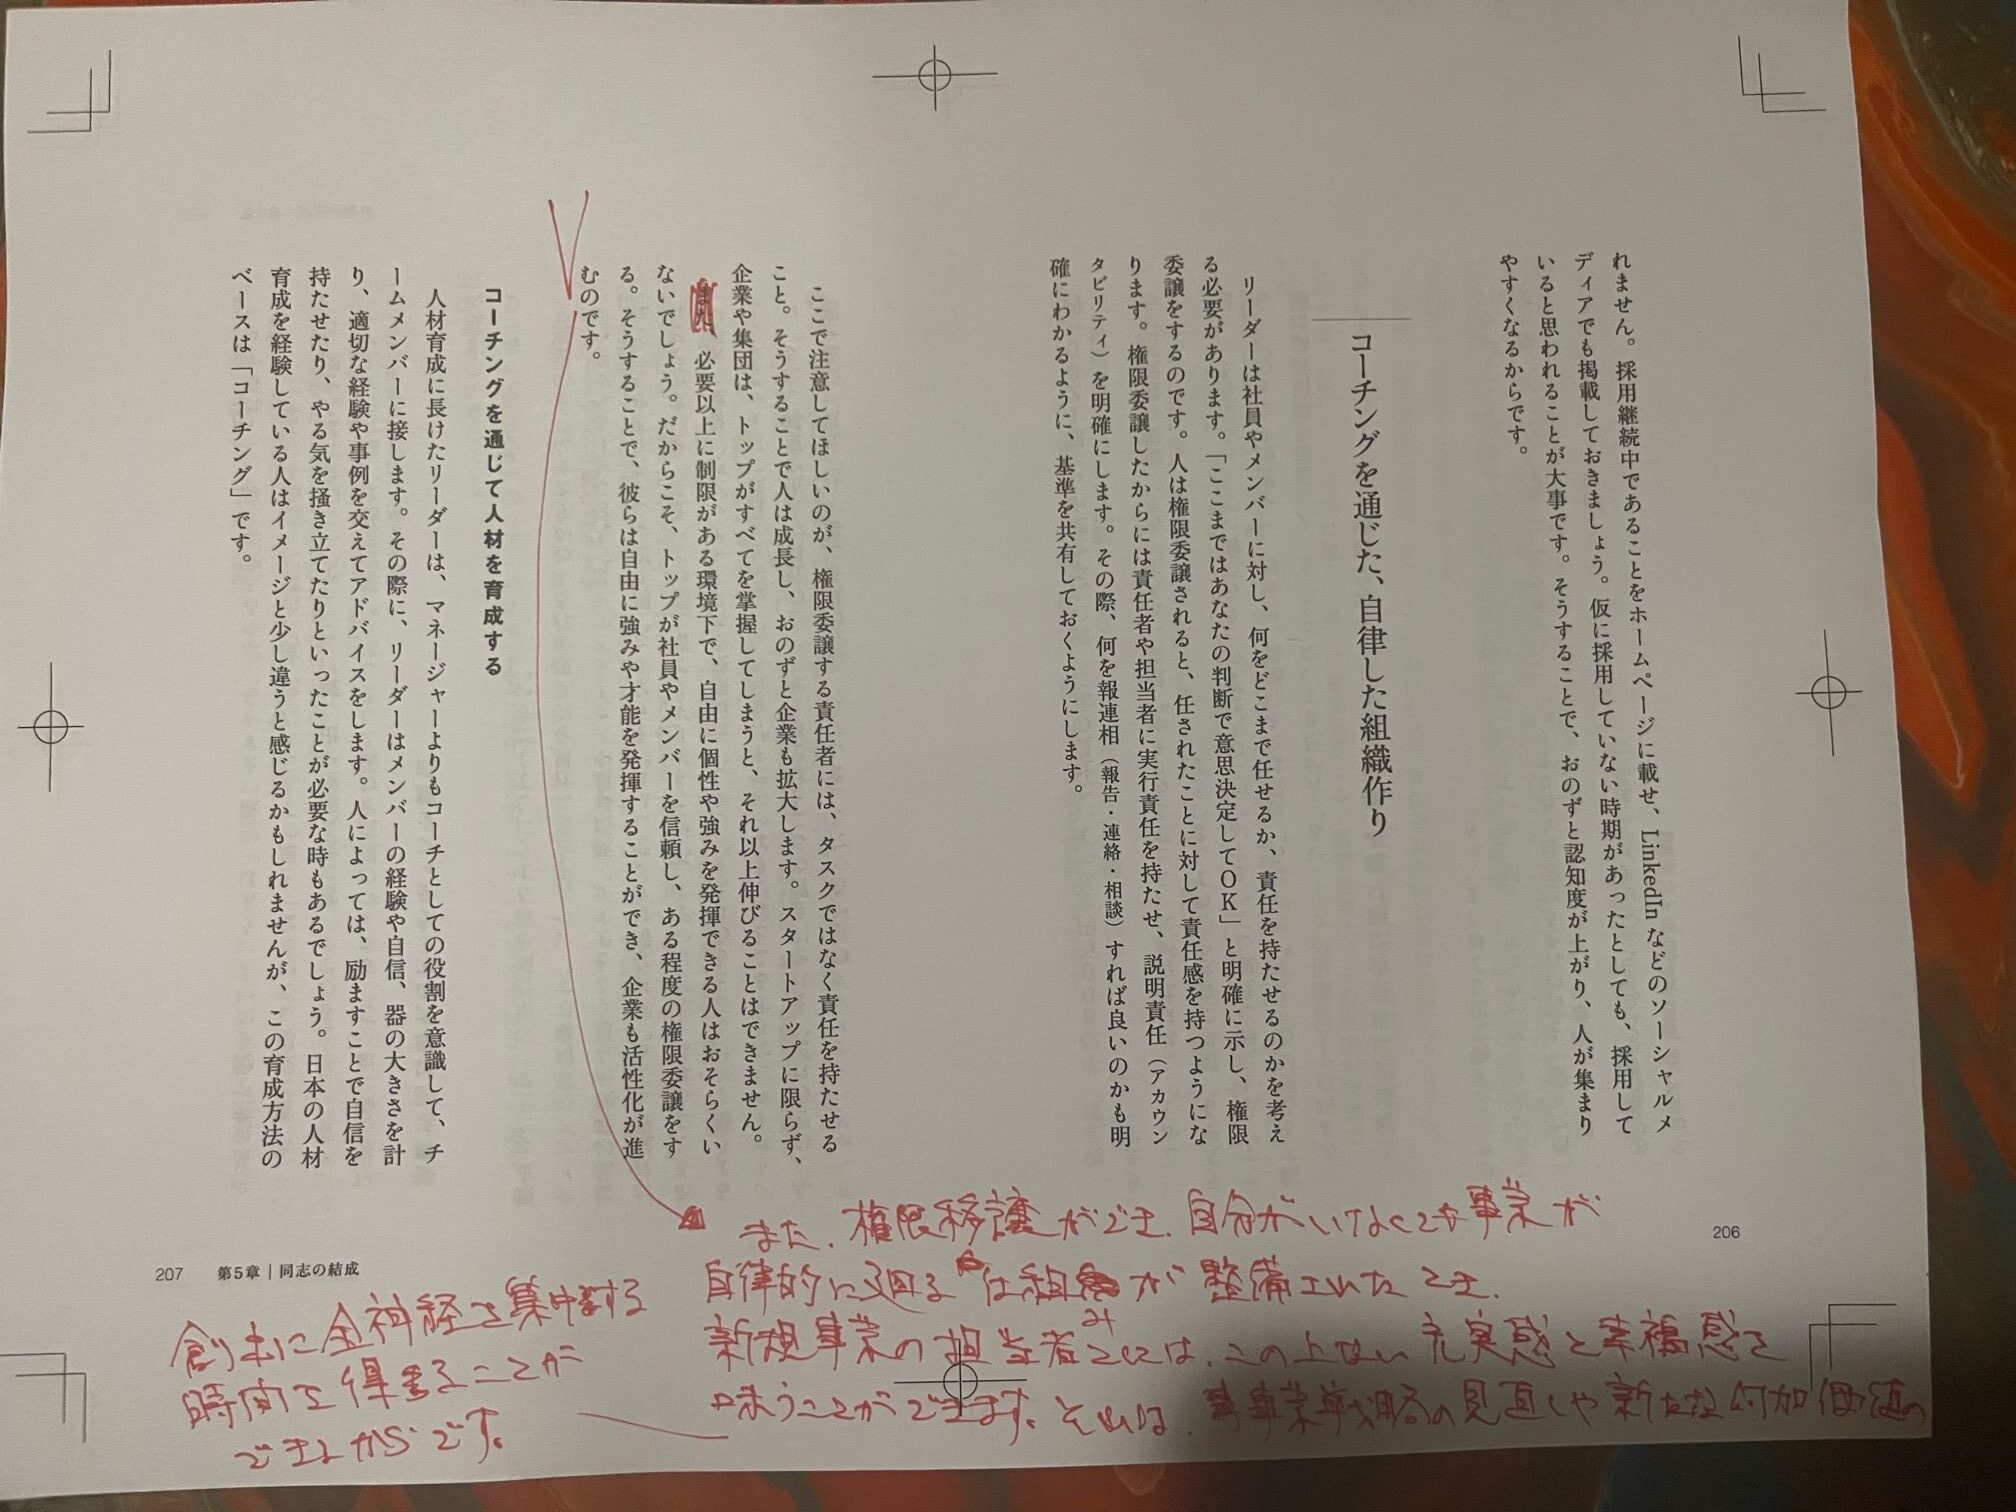 れません。採用継続中であることをホームページに載せ、LinkedInなどのソーシャルメ
ディアでも掲載しておきましょう。仮に採用していない時期があったとしても、採用して
いると思われることが大事です。そうすることで、おのずと認知度が上がり、人が集まり
やすくなるからです。
コーチングを通じた、自律した組織作り
リーダーは社員やメンバーに対し、何をどこまで任せるか、責任を持たせるのかを考え
る必要があります。「ここまではあなたの判断で意思決定してOK」と明確に示し、権限
委譲をするのです。人は権限委譲されると、任されたことに対して責任感を持つようにな
ります。権限委譲したからには責任者や担当者に実行責任を持たせ、説明責任（アカウン
タビリティ）を明確にします。その際、何を報連相（報告・連絡・相談）すれば良いのかも明
確にわかるように、基準を共有しておくようにします。
206
ここで注意してほしいのが、権限委譲する責任者には、タスクではなく責任を持たせる
こと。そうすることで人は成長し、おのずと企業も拡大します。スタートアップに限らず、
企業や集団は、トップがすべてを掌握してしまうと、それ以上伸びることはできません。
また、必要以上に制限がある環境下で、自由に個性や強みを発揮できる人はおそらくい
ないでしょう。だからこそ、トップが社員やメンバーを信頼し、ある程度の権限委譲をす
る。そうすることで、彼らは自由に強みや才能を発揮することができ、企業も活性化が進
むのです。
コーチングを通じて人材を育成する
人材育成に長けたリーダーは、マネージャーよりもコーチとしての役割を意識して、チ
ームメンバーに接します。その際に、リーダーはメンバーの経験や自信、器の大きさを計
り、適切な経験や事例を交えてアドバイスをします。人によっては、励ますことで自信を
持たせたり、やる気を掻き立てたりといったことが必要な時もあるでしょう。日本の人材
育成を経験している人はイメージと少し違うと感じるかもしれませんが、この育成方法の
ベースは「コーチング」です。
207 第5章｜同志の結成
また、権限移譲ができ、自分がいなくても事業が
自律的に廻る仕組みが整備されたとき、
新規事業の担当者としては、この上ない充実感と幸福感を
味うことができます。それは、事業戦略の見直しや新たな付加価値の
創出に全神経を集中する
時間を得ることが
できるからです。